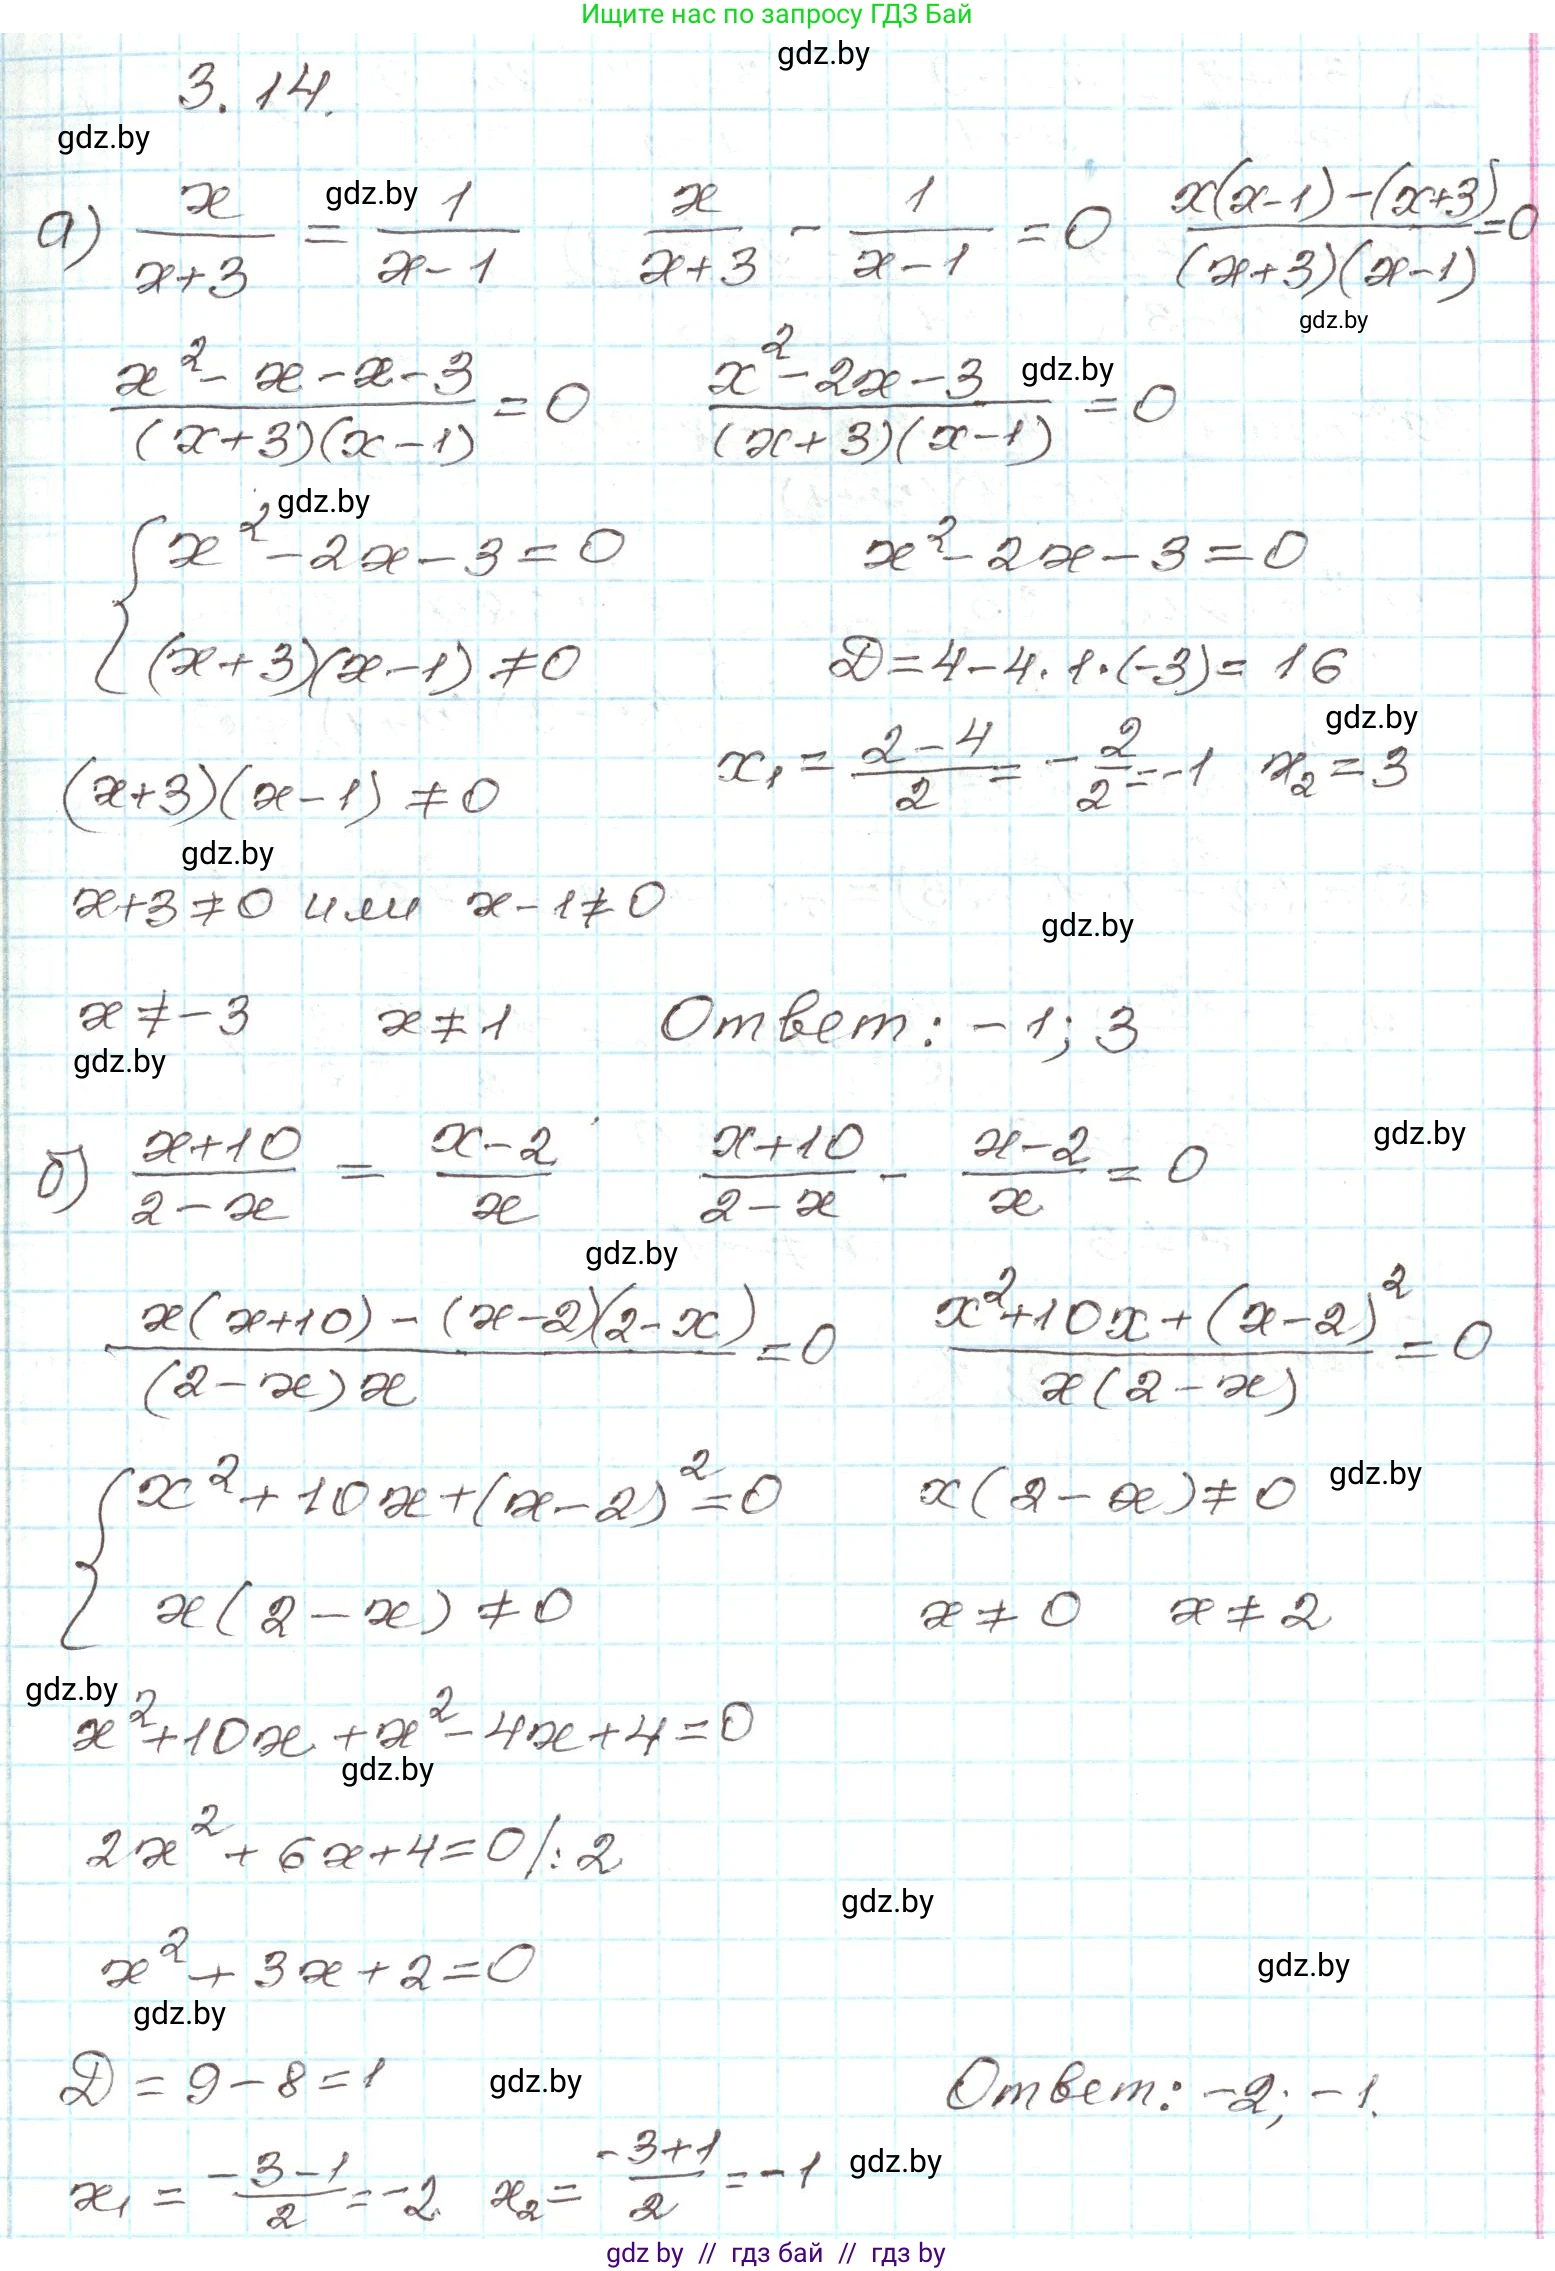 Ищите нас по запросу ГДЗ Бай
gdz.by
3.14.
gdz.by
а) x/(x+3) = 1/(x-1)   x/(x+3) - 1/(x-1) = 0   (x(x-1)-(x+3))/((x+3)(x-1)) = 0
gdz.by
gdz.by
(x²-x-x-3)/((x+3)(x-1)) = 0   (x²-2x-3)/((x+3)(x-1)) = 0
gdz.by
gdz.by
{ x²-2x-3=0   x²-2x-3=0
(x+3)(x-1)≠0   D=4-4·1·(-3)=16
gdz.by
(x+3)(x-1)≠0   x₁ = (2-4)/2 = -2/2 = -1   x₂=3
gdz.by
x+3≠0 или x-1≠0
gdz.by
x≠-3   x≠1   Ответ: -1; 3
gdz.by
gdz.by
б) (x+10)/(2-x) = (x-2)/x   (x+10)/(2-x) - (x-2)/x = 0
gdz.by
(x(x+10)-(x-2)(2-x))/((2-x)x) = 0   (x²+10x+(x-2)²)/(x(2-x)) = 0
{ x²+10x+(x-2)²=0   x(2-x)≠0
gdz.by
x(2-x)≠0   x≠0   x≠2
gdz.by
x²+10x+x²-4x+4=0
gdz.by
2x²+6x+4=0/:2
gdz.by
x²+3x+2=0
gdz.by
gdz.by
D=9-8=1   Ответ: -2; -1.
gdz.by
x₁ = (-3-1)/2 = -2   x₂ = (-3+1)/2 = -1
gdz.by
gdz by // гдз бай // гдз by